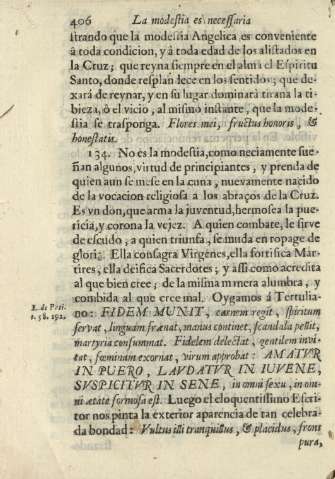 406 La modestia es necessaria
strando que la modestia Angelica es conveniente
â toda condicion, y â toda edad de los alistados en
la Cruz; que reyna siempre en el alma el Espiritu
Santo, donde resplandece en los sentidos; que de-
xará de reynar, y en su lugar dominará tirana la ti-
bieza, ò el vicio, al mismo instante, que la mode-
stia se trasponga. Flores mei, fructus honoris, &
honestatis.
134. No es la modestia, como neciamente sue-
ñan algunos, virtud de principiantes, y prenda de
quien aun se mese en la cuna, nuevamente nacido
de la vocacion religiosa â los abraços de la Cruz.
Es vn don, que arma la juventud, hermosea la pue-
ricia, y corona la vejez. A quien combate, le sirve
de escudo, a quien triunfa, se muda en ropage de
gloria. Ella consagra Virgenes, ella fortifica Már-
tires, ella deifica Sacerdotes; y assi como acredita
al que bien cree; de la misma manera alumbra, y
combida al que cree mal. Oygamos â Tertulia-
L. de Pati. no: FIDEM MUNIT, carnem regit, spiritum
c. 58. 192. servat, linguam frænat, manus continet, scandala pellit,
martyria consummat. Fidelem delectat, gentilem invi-
tat, fœminam exornat, virum approbat: AMATVR
IN PVERO, LAVDATVR IN IUVENE,
SVSPICITVR IN SENE, in omni sexu, in om-
ni ætate formosa est. Luego el eloquentissimo Escri-
tor nos pinta la exterior aparencia de tan celebra-
da bondad: Vultus illi tranquillus, & placidus, frons
pura,